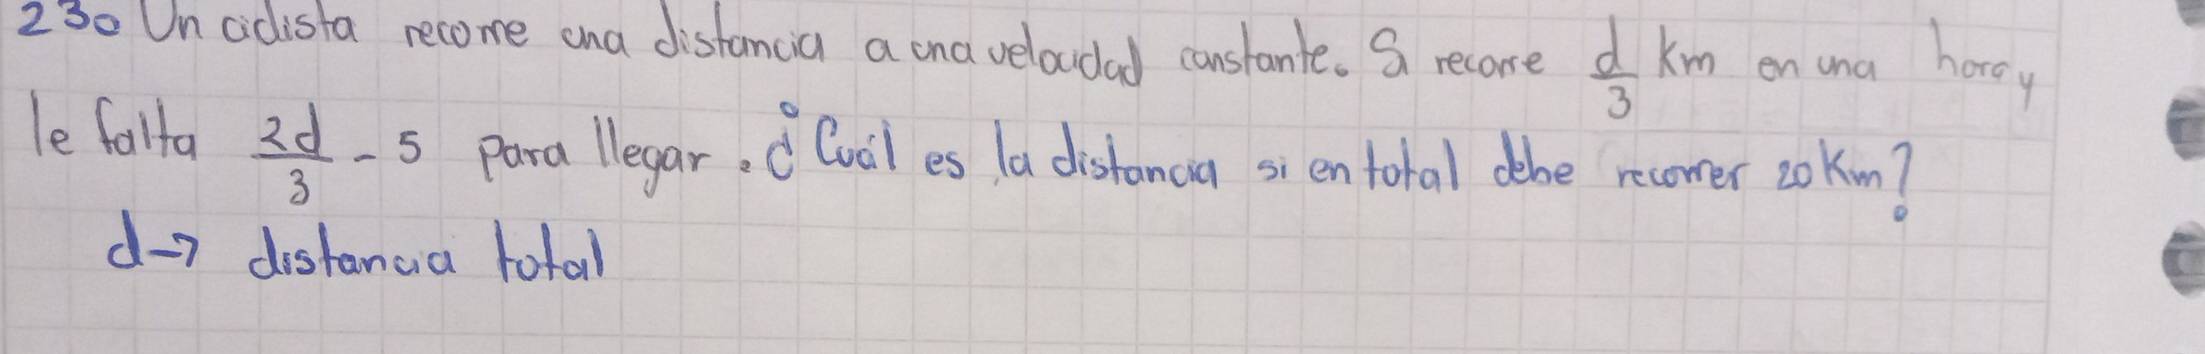 230 Un ciclista recorre una distancia a una velocidad constante. Si recorre d/3 Km en una hora y
le falta 2d/3 - 5 para llegar. ¿Cuál es la distancia si en total debe recorrer 20 Km?
d→ distancia total